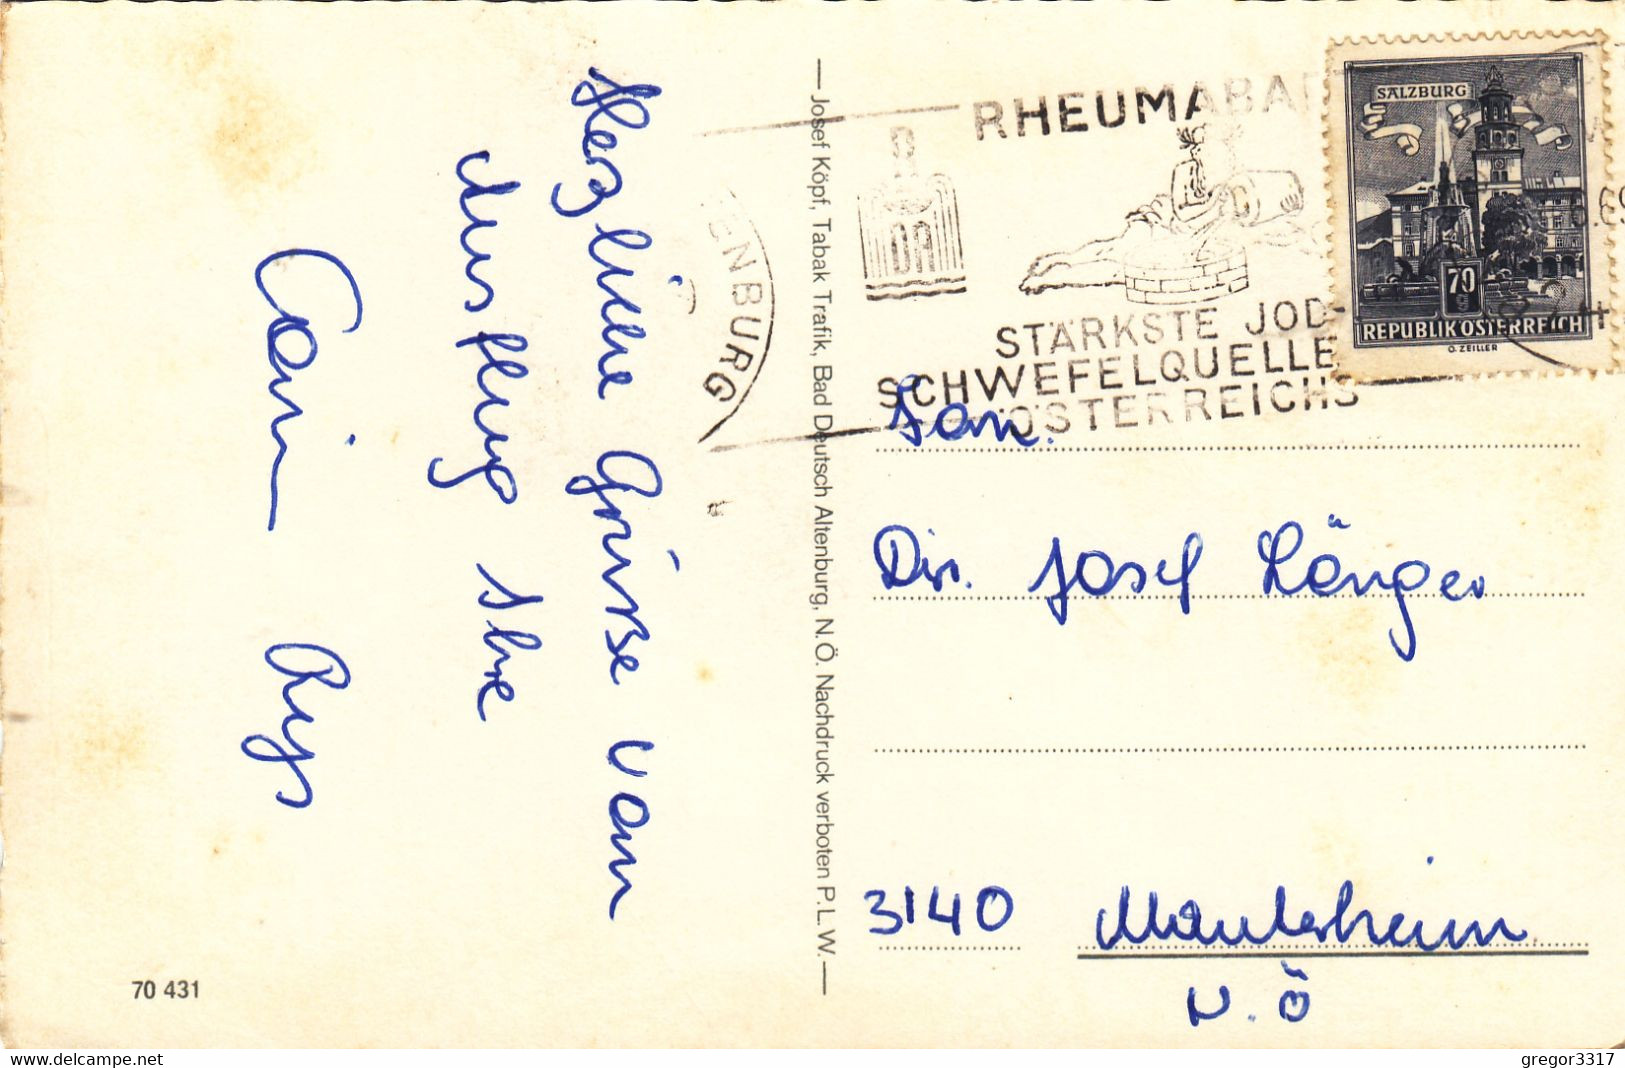 Herzliche Grüße vom
Ausflug Ihre
— Josef Köpf, Tabak Trafik, Bad Deutsch Altenburg, N.Ö. Nachdruck verboten P.L.W. —
70 431
ENBURG
RHEUMABA
DA
STÄRKSTE JOD-
SCHWEFELQUELLE
ÖSTERREICHS
SALZBURG
70
g
REPUBLIK ÖSTERREICH
O. ZEILLER
Fam.
Dir. Josef
3140
N.Ö
www.delcampe.net
gregor3317